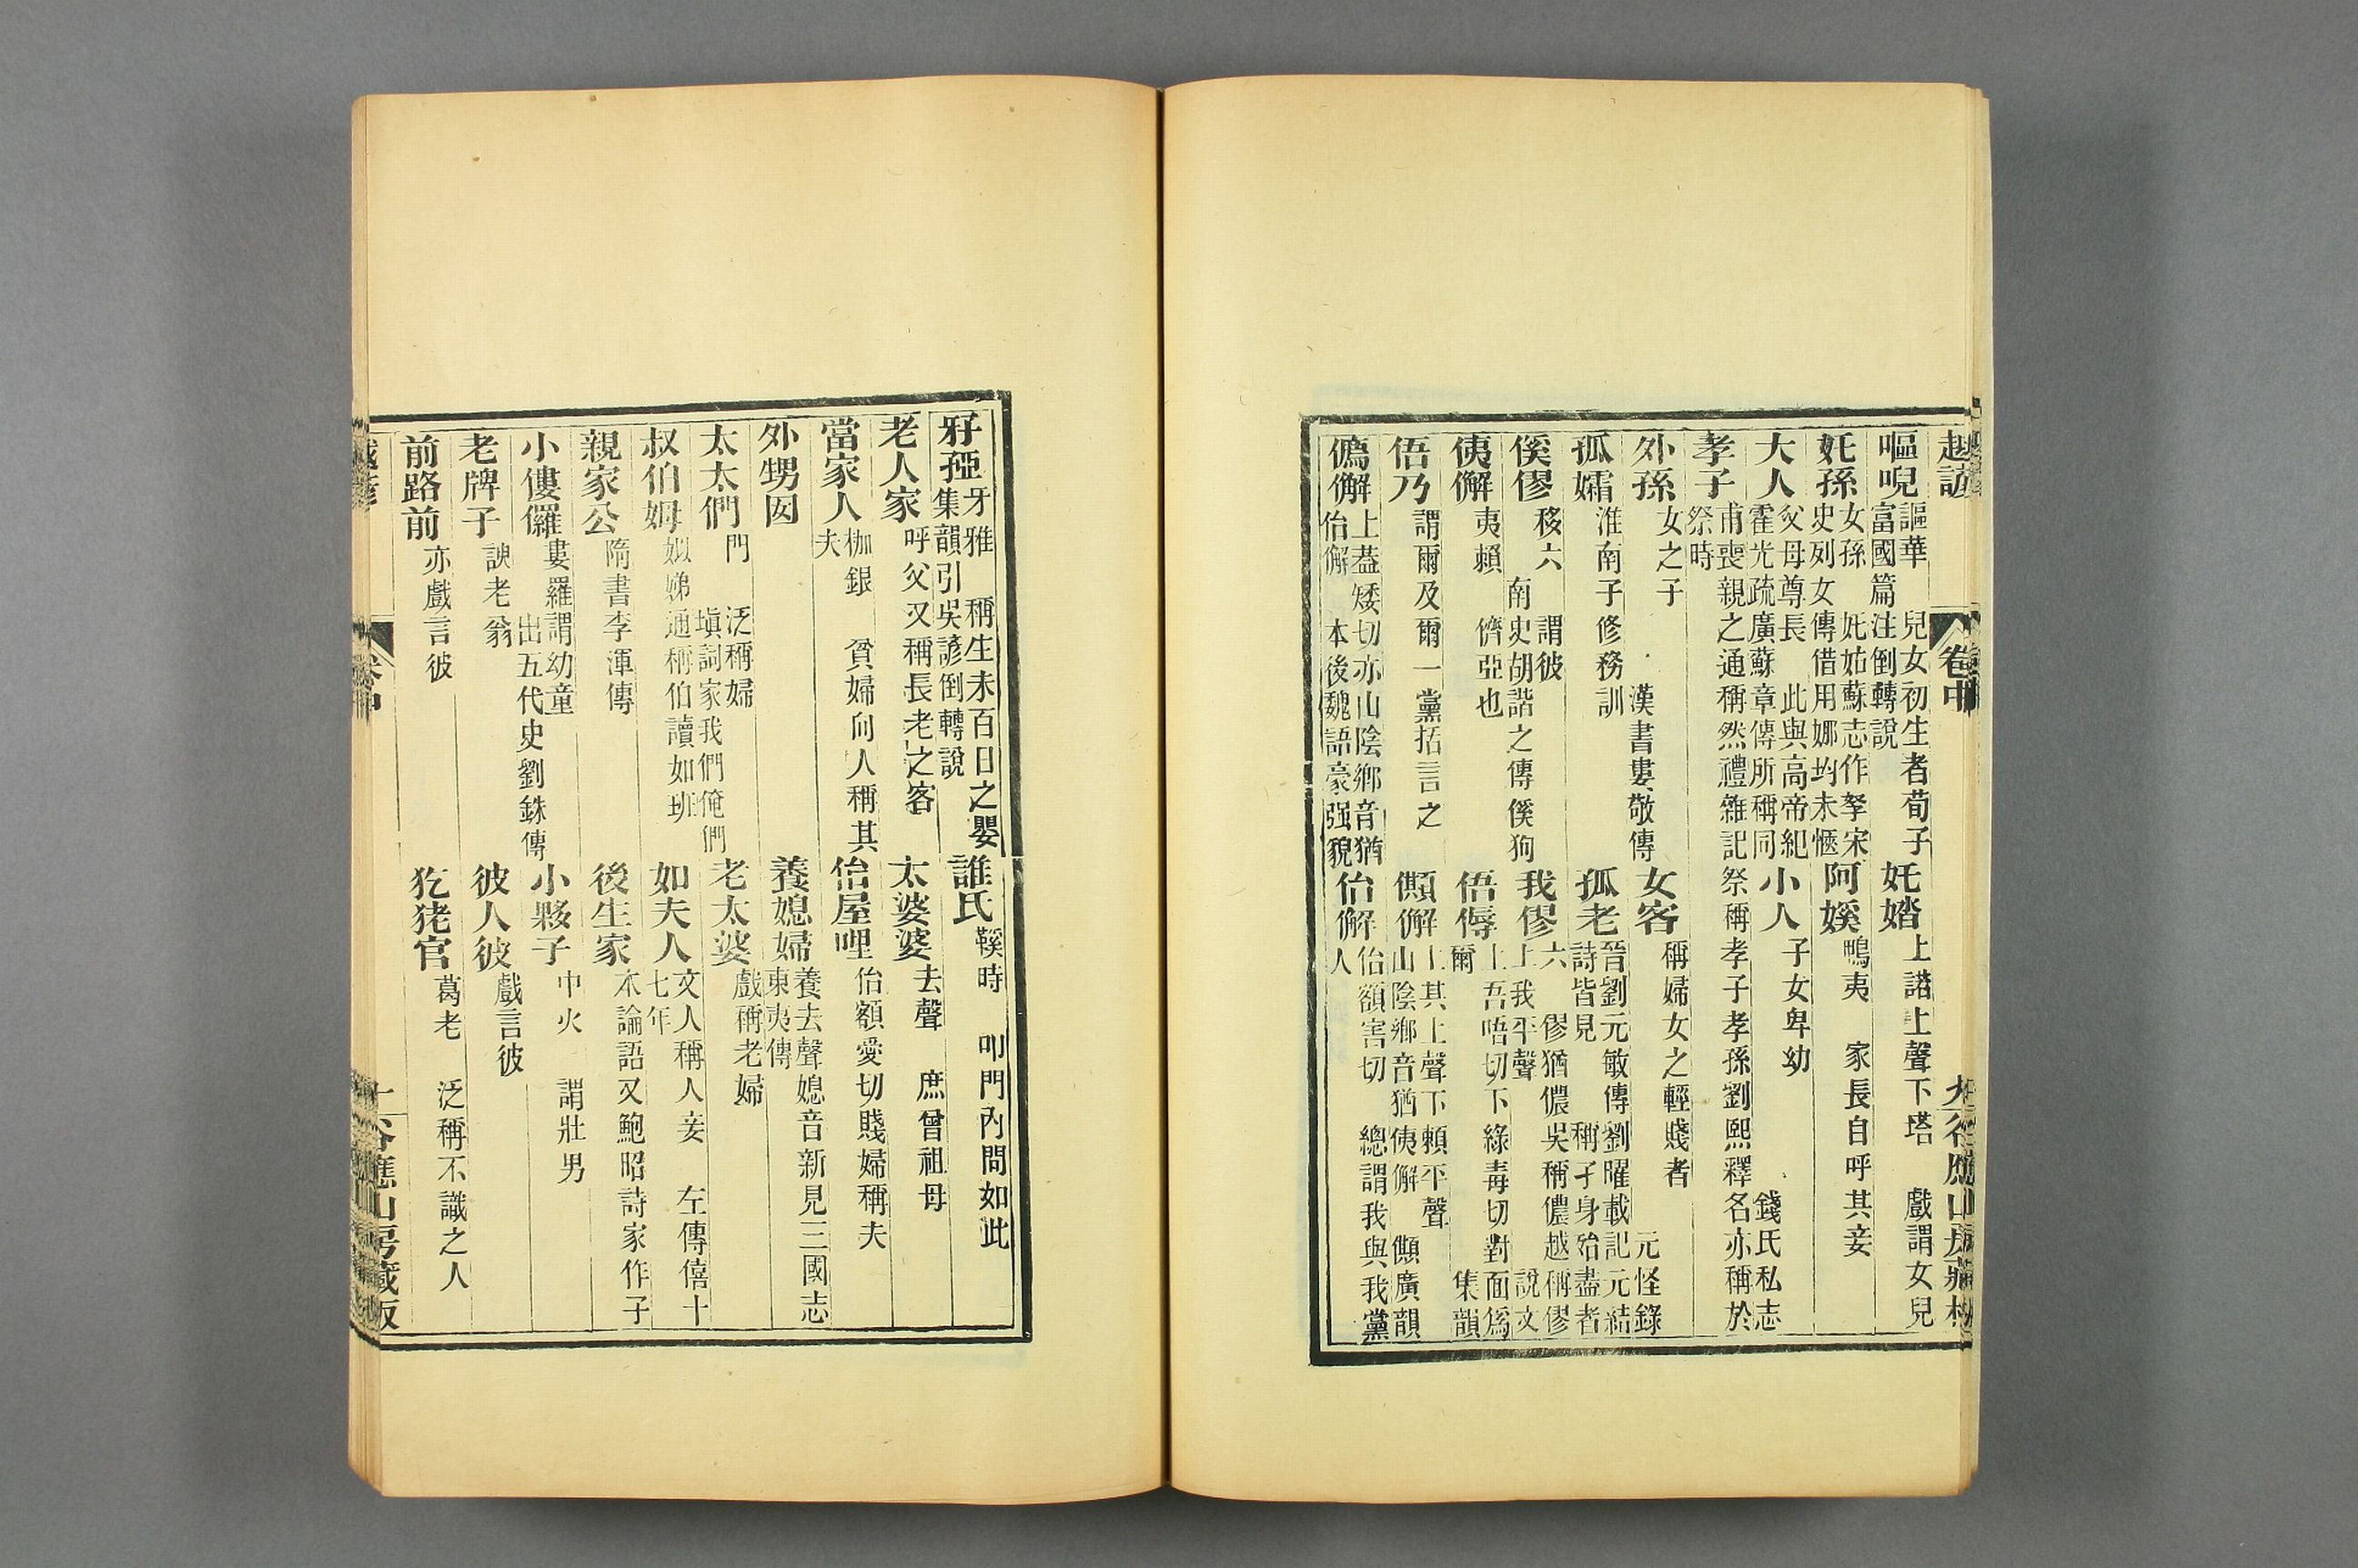 越諺 卷中 九 谷應山房藏板
嘔唲 謳華 兒女初生者荀子富國篇注倒轉說
奼㛥 上諾上聲下塔 戲謂女兒
奼孫 女孫 奼姑蘇志作孥宋史列女傳借用娜均未愜
阿媛 鴨夷 家長自呼其妾
大人 父母尊長 此與高帝紀霍光疏廣蘇章傳所稱同
小人 子女卑幼 錢氏私志
孝子 甫喪親之通稱然禮雜記祭稱孝子孝孫劉熙釋名亦稱於祭時
外孫 女之子 漢書婁敬傳
女客 稱婦女之輕賤者 元怪錄
孤孀 淮南子修務訓
孤老 晉劉元敏傳劉曜載記元結詩皆見 稱孑身殆盡者
傒僇 移六 謂彼 南史胡諧之傳傒狗
我僇 上我平聲 六 僇猶儂吳稱儂越稱僇 說文
侇懈 夷賴 儕亞也
俉㑄 上吾唔切下綠毒切對面爲爾 集韻
俉乃 謂爾及爾一黨括言之
僞懈 上葢矮切亦山陰鄉音猶佁懈 本後魏語豪强貌
佁懈 佁額害切 總謂我與我黨人
牙孲 牙雅 稱生未百日之嬰 集韻引吳諺倒轉說
誰氏 䩭時 叩門內問如此
老人家 呼父又稱長老之客
太婆婆 去聲 庶曾祖母
當家人 枷銀 貧婦向人稱其夫
佁屋哩 佁額愛切賤婦稱夫
外甥囡
養媳婦 養去聲媳音新見三國志東夷傳
太太們 門 泛稱婦 塡詞家我們俺們
老太婆 戲稱老婦
叔伯姆 姒娣通稱伯讀如班
如夫人 文人稱人妾 左傳僖十七年
親家公 隋書李渾傳
後生家 本論語又鮑照詩家作子
小僂儸 婁羅謂幼童 出五代史劉銖傳
小夥子 中火 謂壯男
老牌子 諛老翁
彼人彼 戲言彼
前路前 亦戲言彼
犵狫官 葛老 泛稱不識之人
越諺 卷中 十 谷應山房藏板